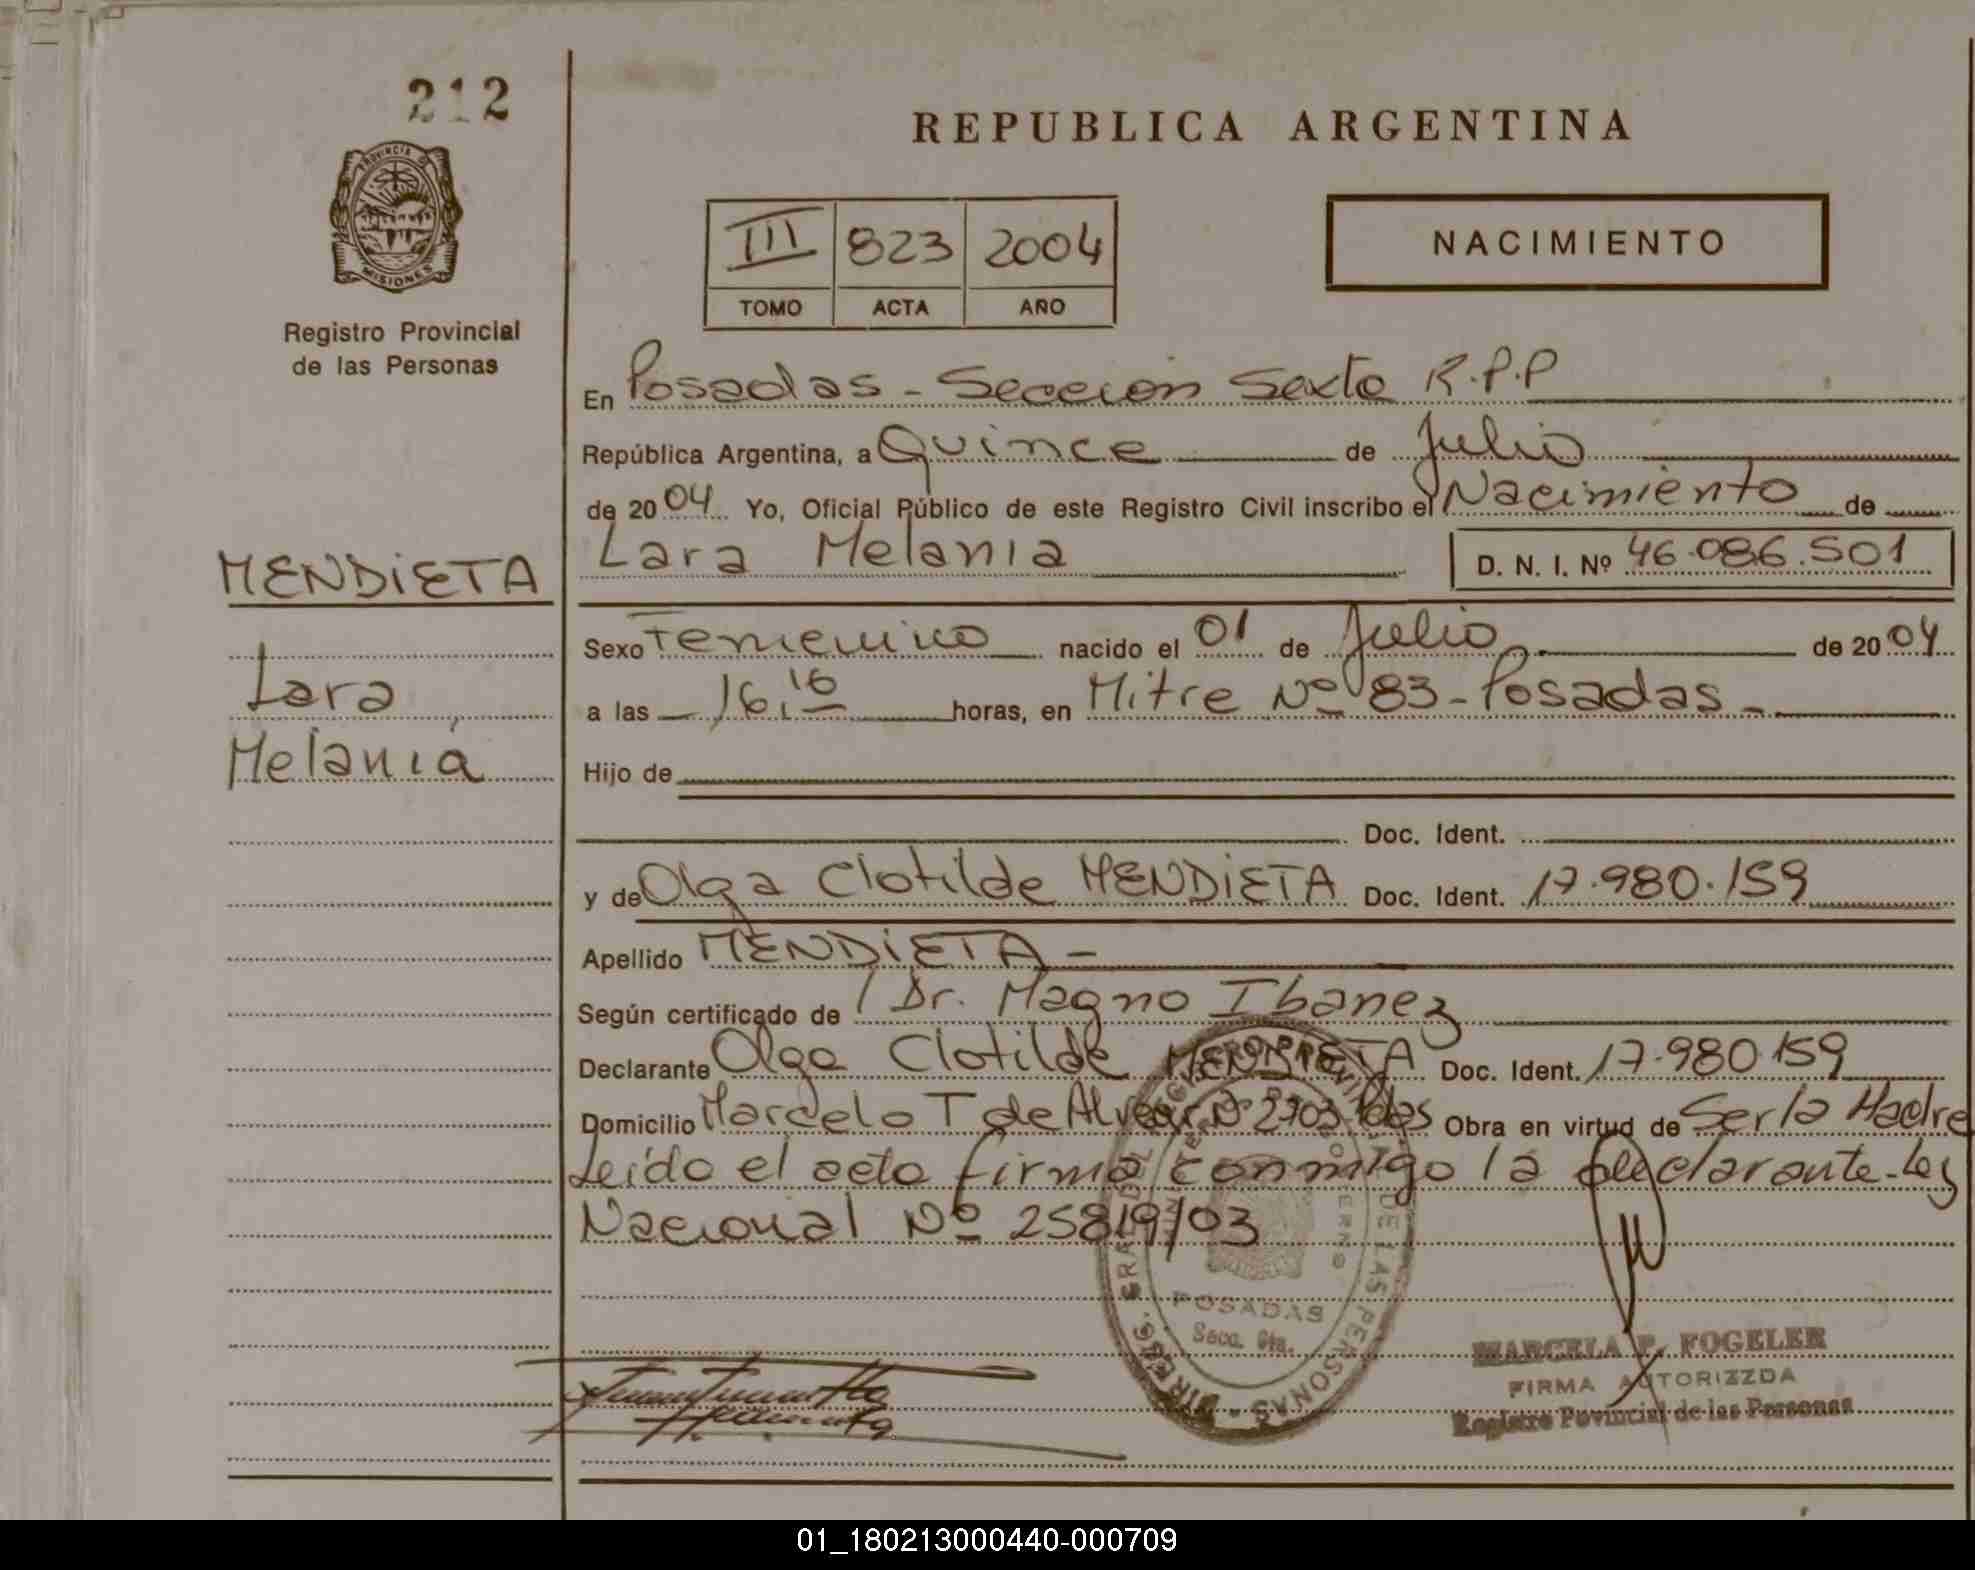 212
PROVINCIA DE
MISIONES
Registro Provincial
de las Personas
MENDIETA
Lara
Melania
REPUBLICA ARGENTINA
III 823 2004
TOMO ACTA AÑO
NACIMIENTO
En Posadas - Seccion Sexta R.P.P
República Argentina, a Quince de Julio
de 2004 Yo, Oficial Público de este Registro Civil inscribo el Nacimiento de
Lara Melania D. N. I. Nº 46.086.501
Sexo Femenino nacido el 01 de Julio de 2004
a las 16,16 horas, en Mitre Nº 83 - Posadas -
Hijo de
Doc. Ident.
y de Olga Clotilde MENDIETA Doc. Ident. 17.980.159
Apellido MENDIETA -
Según certificado de Dr. Magno Ibanez
Declarante Olga Clotilde MENDIETA Doc. Ident. 17.980.159
Domicilio Marcelo T de Alvear Nº 2703 Pdas Obra en virtud de Ser la Madre
Leído el acta firma conmigo la declarante - Ley
Nacional Nº 25819/03
POSADAS
Secc. 6ta.
MARCELA P. FOGELER
FIRMA AUTORIZZDA
Registro Povincial de las Personas
01_180213000440-000709